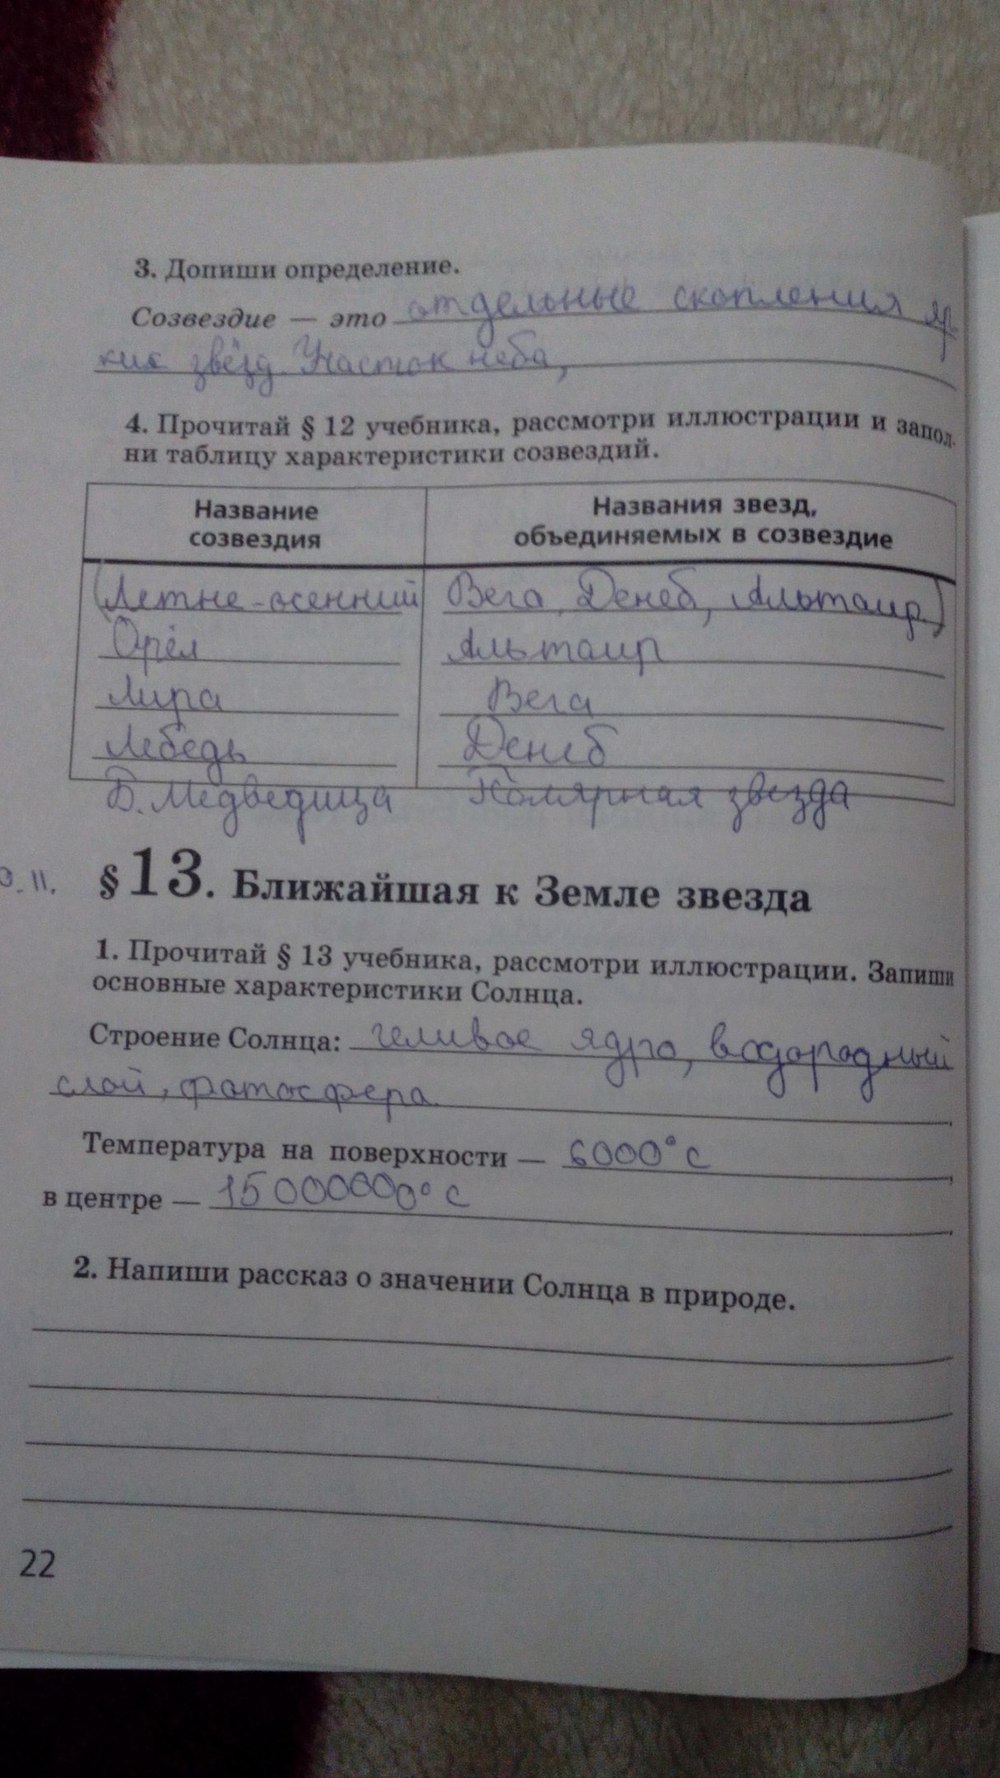 3. Допиши определение.
Созвездие — это отдельные скопления яр-
ких звёзд. Участок неба,
4. Прочитай § 12 учебника, рассмотри иллюстрации и запол-
ни таблицу характеристики созвездий.
Название созвездия
Названия звезд, объединяемых в созвездие
(Летне-осенний Вега, Денеб, Альтаир)
Орёл Альтаир
Лира Вега
Лебедь Денеб
Б. Медведица Полярная звезда
§ 13. Ближайшая к Земле звезда
1. Прочитай § 13 учебника, рассмотри иллюстрации. Запиши
основные характеристики Солнца.
Строение Солнца: геливое ядро, водородный
слой, фотосфера
Температура на поверхности — 6000° С
в центре — 15 000000° С
2. Напиши рассказ о значении Солнца в природе.
22